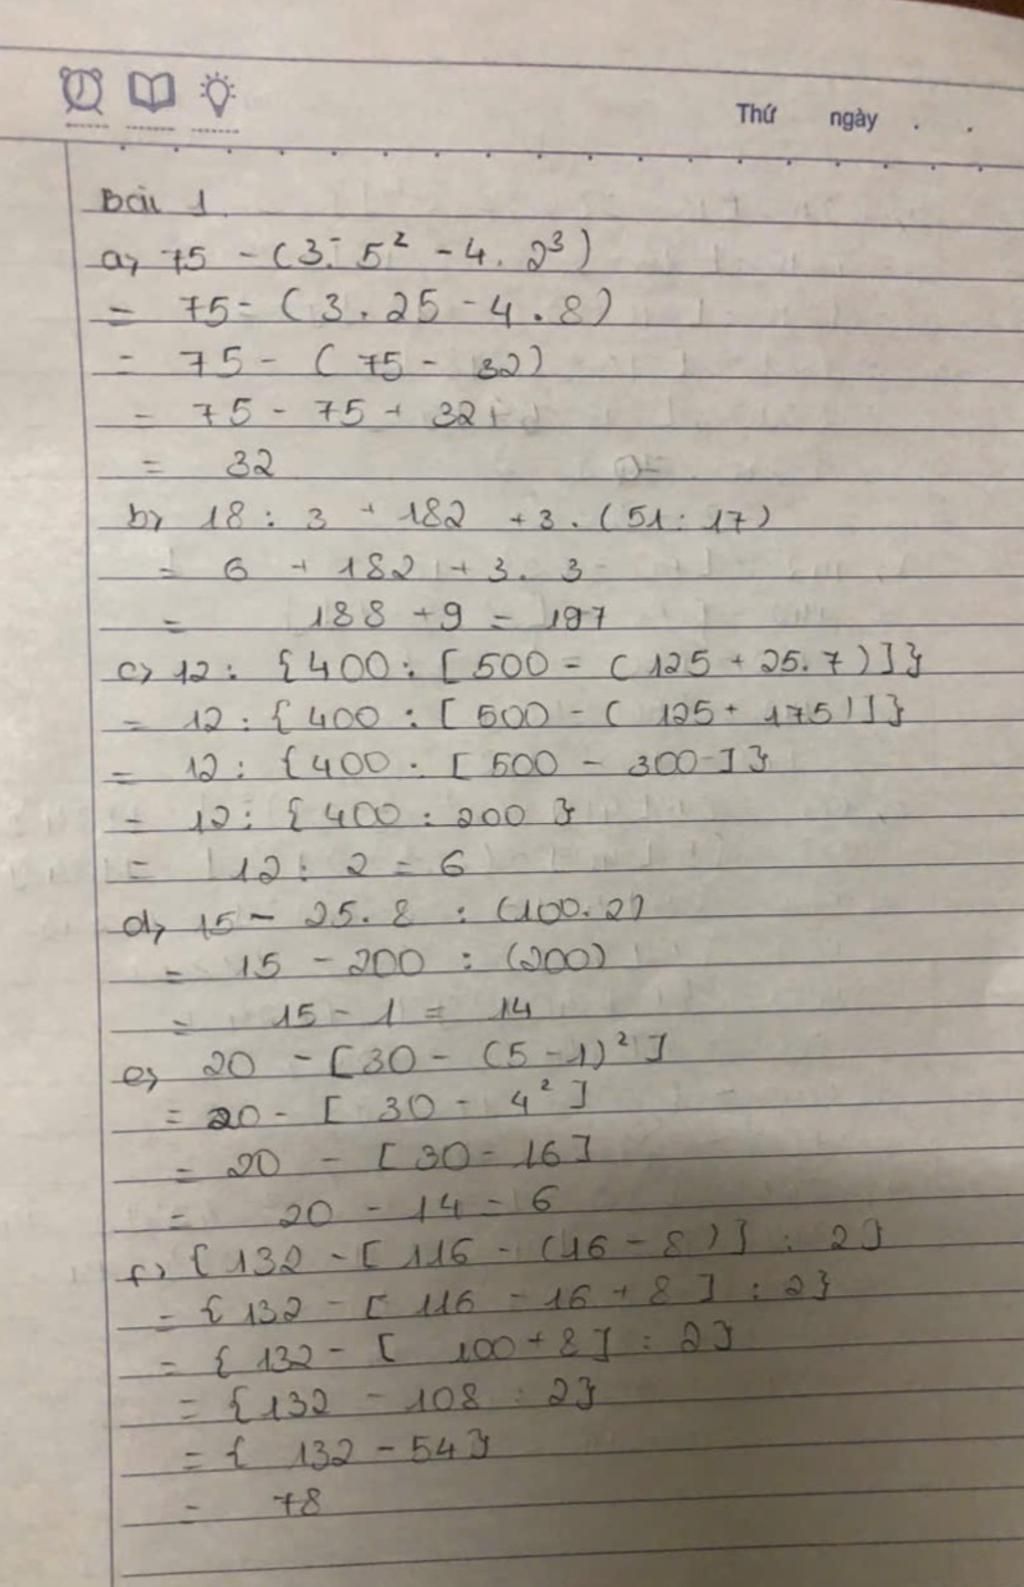 Thứ ngày . .
Bài 1
a, 75 - (3. 5² - 4. 2³)
= 75 - (3 . 25 - 4 . 8)
= 75 - ( 75 - 32)
= 75 - 75 + 32
= 32
b, 18 : 3 + 182 + 3 . (51 : 17)
= 6 + 182 + 3. 3
= 188 + 9 = 197
c, 12 : {400 : [ 500 - ( 125 + 25. 7 ) ] }
= 12 : { 400 : [ 500 - ( 125 + 175 ) ] }
= 12 : { 400 : [ 500 - 300 ] }
= 12 : { 400 : 200 }
= 12 : 2 = 6
d, 15 - 25. 8 : (100. 2)
= 15 - 200 : (200)
= 15 - 1 = 14
e, 20 - [ 30 - (5 - 1)² ]
= 20 - [ 30 - 4² ]
= 20 - [ 30 - 16 ]
= 20 - 14 = 6
f, { 132 - [ 116 - (16 - 8 ) ] : 2 }
= { 132 - [ 116 - 16 + 8 ] : 2 }
= { 132 - [ 100 + 8 ] : 2 }
= { 132 - 108 : 2 }
= { 132 - 54 }
= 78